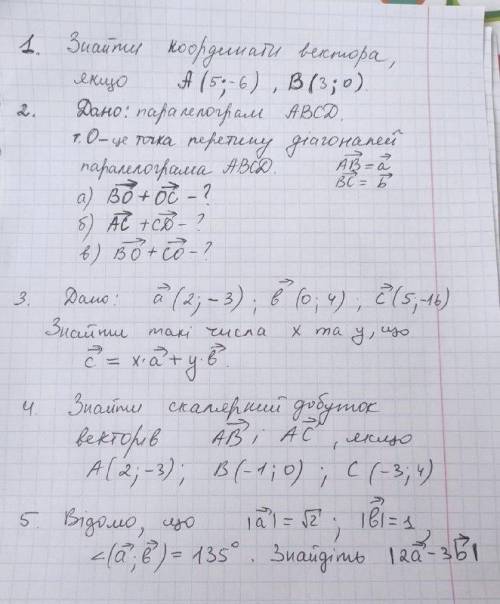 1. Знайти координати вектора,
якщо A(5;-6), B(3;0).
2. Дано: паралелограм ABCD.
т.О-це точка перетину діагоналей
паралелограма ABCD. A͞B⃗ = a⃗
BC⃗ = b⃗
а) BO⃗ + OC⃗ - ?
б) AC⃗ + CD⃗ - ?
в) BO⃗ + CO⃗ - ?
3. Дано: a⃗ (2;-3); b⃗ (0;4), c⃗ (5;-16)
Знайти такі числа x та y, що
c⃗ = x·a⃗ + y·b⃗.
4. Знайти скалярний добуток
векторів AB⃗ і AC⃗, якщо
A(2;-3); B(-1;0); C(-3;4)
5. Відомо, що |a⃗| = √2; |b⃗| = 1,
∠(a⃗;b⃗) = 135°. Знайдіть |2a⃗ - 3b⃗|